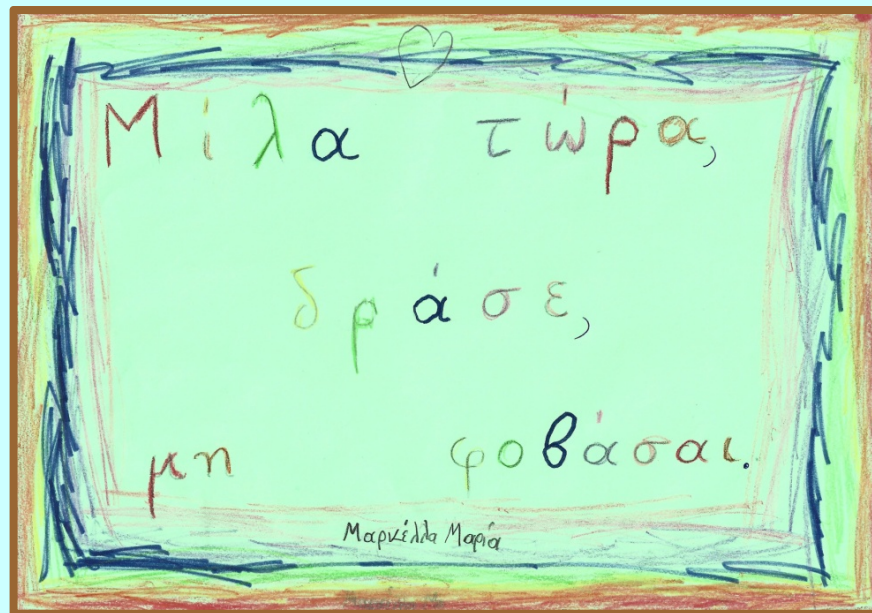 Μίλα τώρα,
δράσε,
μη φοβάσαι.
Μαρκέλλα Μαρία